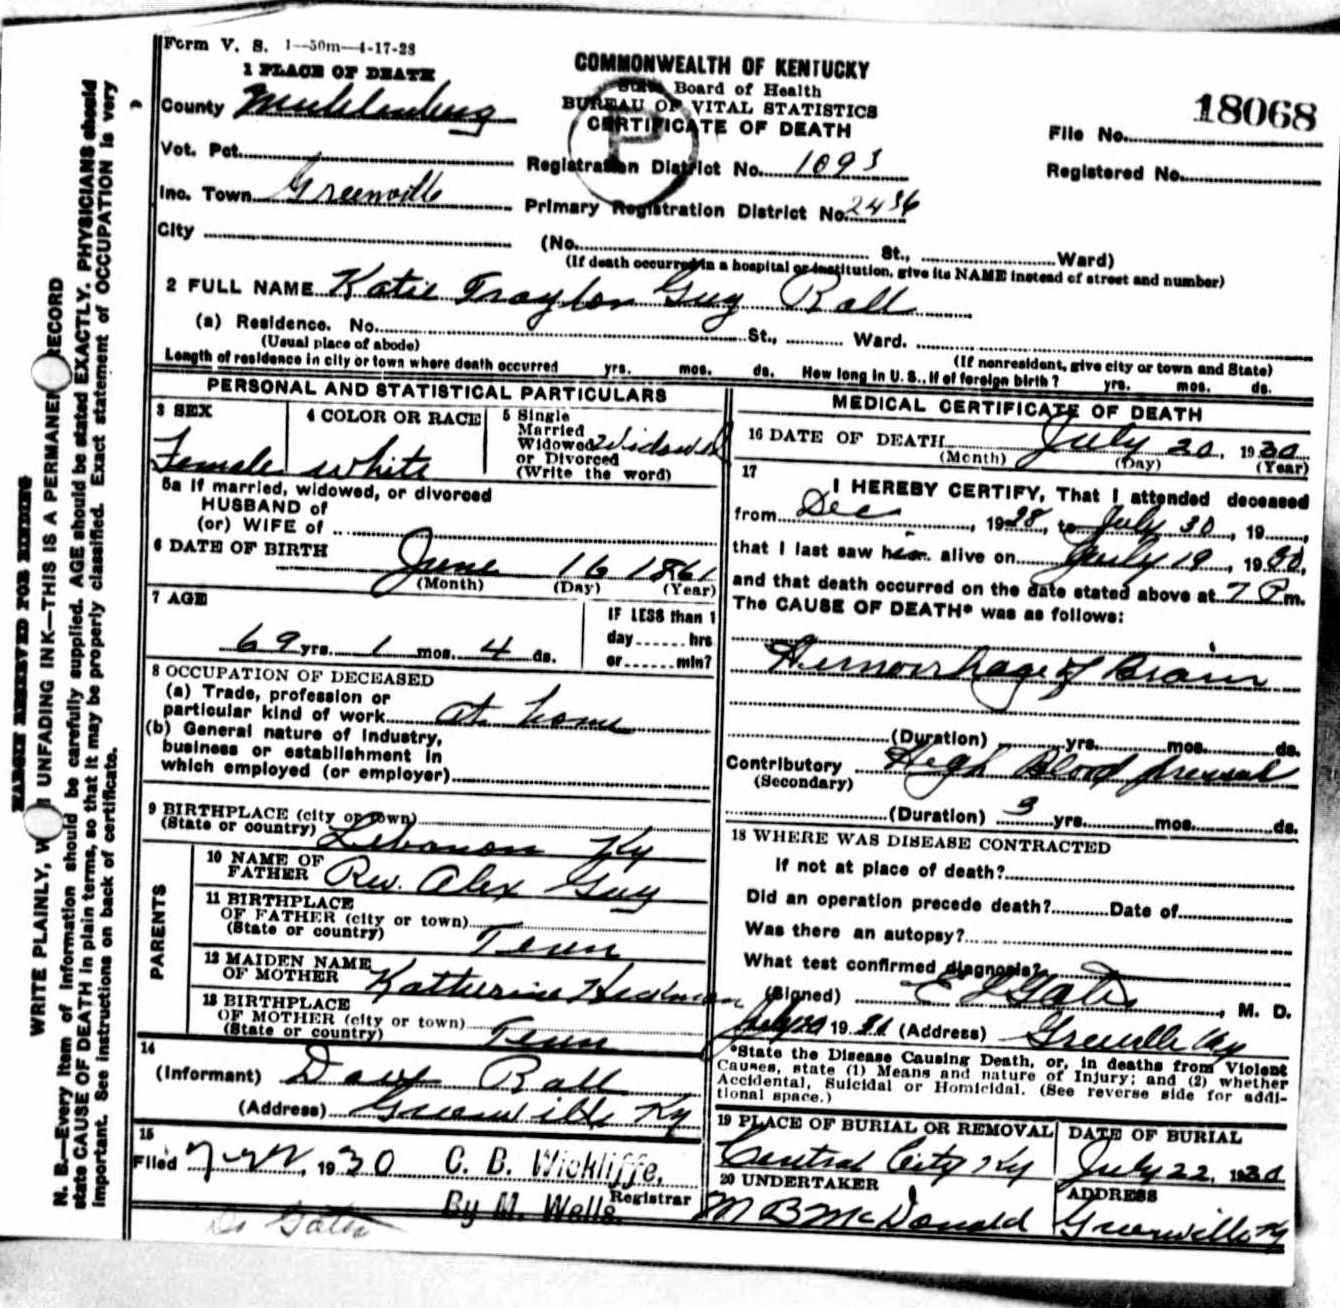 Form V. S. 1—50m—4-17-28
1 PLACE OF DEATH
COMMONWEALTH OF KENTUCKY
State Board of Health
BUREAU OF VITAL STATISTICS
CERTIFICATE OF DEATH
18068
File No.
Registered No.
County Muhlenberg
Vot. Pct.
Registration District No. 1093
Inc. Town Greenville
Primary Registration District No. 2436
City (No. St., Ward)
(If death occurred in a hospital or institution, give its NAME instead of street and number)
2 FULL NAME Katie Traylor Guy Ball
(a) Residence. No. St., Ward.
(Usual place of abode) (If nonresident, give city or town and State)
Length of residence in city or town where death occurred yrs. mos. ds. How long in U. S., if of foreign birth? yrs. mos. ds.
PERSONAL AND STATISTICAL PARTICULARS
3 SEX
Female
4 COLOR OR RACE
white
5 Single
Married
Widowed
or Divorced
(Write the word)
Widowed
5a If married, widowed, or divorced
HUSBAND of
(or) WIFE of
6 DATE OF BIRTH
June 16 1861
(Month) (Day) (Year)
7 AGE
69 yrs. 1 mos. 4 ds.
IF LESS than 1
day hrs
or min?
8 OCCUPATION OF DECEASED
(a) Trade, profession or
particular kind of work at home
(b) General nature of Industry,
business or establishment in
which employed (or employer)
9 BIRTHPLACE (city or town)
(State or country) Lebanon Ky
PARENTS
10 NAME OF
FATHER Rev. Alex Guy
11 BIRTHPLACE
OF FATHER (city or town)
(State or country) Tenn
12 MAIDEN NAME
OF MOTHER Katherine Hickman
13 BIRTHPLACE
OF MOTHER (city or town)
(State or country) Tenn
14
(Informant) Ball
(Address) Greenville Ky
15
Filed 1930 C. B. Wickliffe,
Registrar
By M. Wells.
Dr Gates
MEDICAL CERTIFICATE OF DEATH
16 DATE OF DEATH July 20, 1930
(Month) (Day) (Year)
17
I HEREBY CERTIFY, That I attended deceased
from Dec, 1928, to July 30, 19
that I last saw her alive on July 19, 1930,
and that death occurred on the date stated above at 7 P.m.
The CAUSE OF DEATH* was as follows:
Hemorrhage of Brain
(Duration) yrs. mos. ds.
Contributory High Blood pressure
(Secondary)
(Duration) 3 yrs. mos. ds.
18 WHERE WAS DISEASE CONTRACTED
If not at place of death?
Did an operation precede death? Date of
Was there an autopsy?
What test confirmed diagnosis?
(Signed) E L Gates, M. D.
July 19 (Address) Greenville Ky
*State the Disease Causing Death, or, in deaths from Violent
Causes, state (1) Means and nature of Injury; and (2) whether
Accidental, Suicidal or Homicidal. (See reverse side for addi-
tional space.)
19 PLACE OF BURIAL OR REMOVAL
Central City Ky
DATE OF BURIAL
July 22, 1930
20 UNDERTAKER
M B McDonald
ADDRESS
Greenville Ky
MARGIN RESERVED FOR BINDING
WRITE PLAINLY, WITH UNFADING INK—THIS IS A PERMANENT RECORD
N. B.—Every item of information should be carefully supplied. AGE should be stated EXACTLY. PHYSICIANS should
state CAUSE OF DEATH in plain terms, so that it may be properly classified. Exact statement of OCCUPATION is very
important. See instructions on back of certificate.